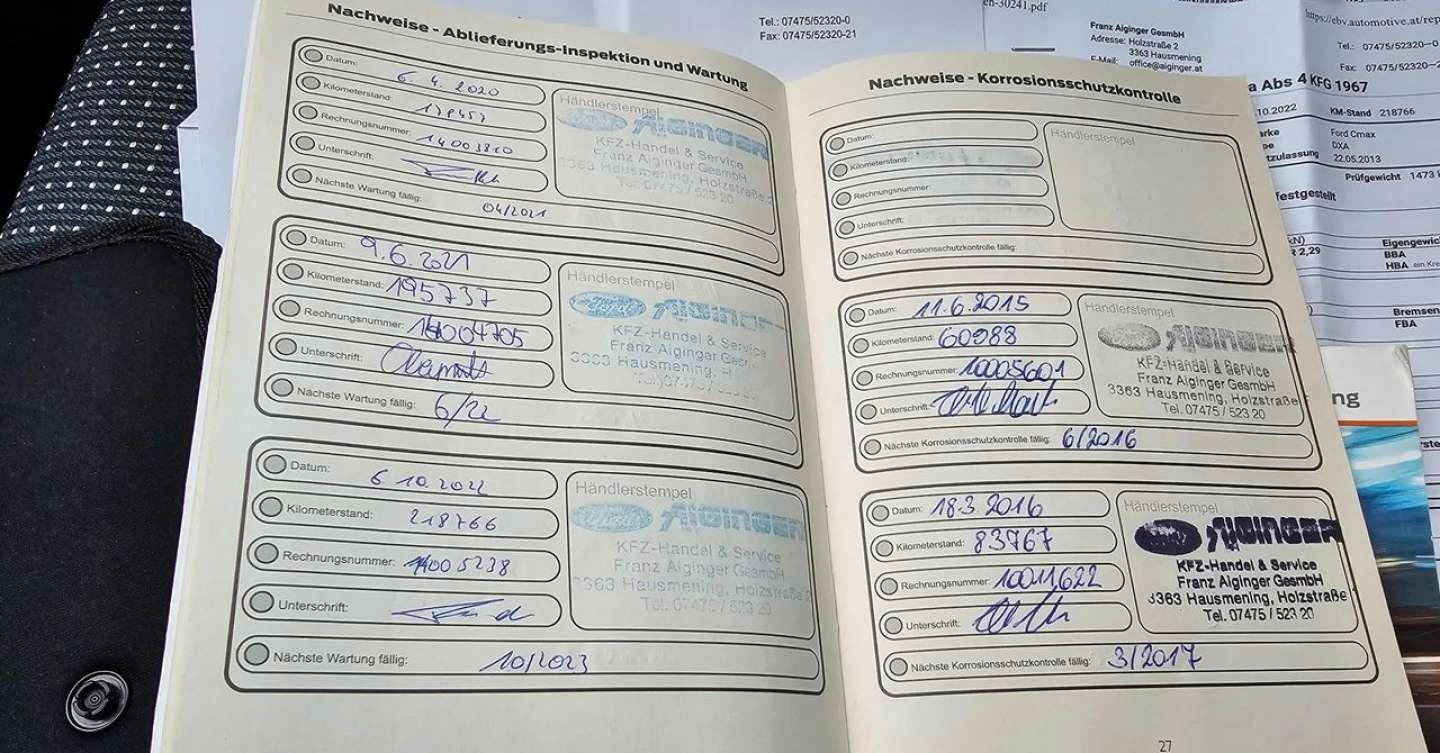 Tel.: 07475/52320-0
Fax: 07475/52320-21
en-30241.pdf
Franz Aiginger GesmbH
Adresse: Holzstraße 2
3363 Hausmening
E-Mail: office@aiginger.at
https://ebv.automotive.at/rep
Tel.: 07475/52320-0
Fax: 07475/52320-2
a Abs 4 KFG 1967
.10.2022 KM-Stand 218766
arke Ford Cmax
pe DXA
tzulassung 22.05.2013
Prüfgewicht 1473
festgestellt
kN) Eigengewic
R 2,29 BBA
HBA ein Kre
Bremsen
FBA
ng
Nachweise - Ablieferungs-Inspektion und Wartung
Datum: 6. 4. 2020
Kilometerstand: 178457
Rechnungsnummer: 14003810
Unterschrift:
Nächste Wartung fällig: 04/2021
Händlerstempel
AIGINGER
KFZ-Handel & Service
Franz Aiginger GesmbH
3363 Hausmening, Holzstraße 2
Tel. 07475 / 523 20
Datum: 9.6.2021
Kilometerstand: 195737
Rechnungsnummer: 14004705
Unterschrift:
Nächste Wartung fällig: 6/22
Händlerstempel
Ford AIGINGER
KFZ-Handel & Service
Franz Aiginger Gesm
3363 Hausmening, H
Datum: 6 10.2022
Kilometerstand: 218766
Rechnungsnummer: 14005238
Unterschrift:
Nächste Wartung fällig: 10/2023
Händlerstempel
Ford AIGINGER
KFZ-Handel & Service
Franz Aiginger GesmbH
3363 Hausmening, Holzstraße 2
Tel. 07475 / 523 20
Nachweise - Korrosionsschutzkontrolle
Datum:
Kilometerstand:
Rechnungsnummer:
Unterschrift:
Nächste Korrosionsschutzkontrolle fällig:
Händlerstempel
Datum: 11.6.2015
Kilometerstand: 60988
Rechnungsnummer: 10005601
Unterschrift:
Nächste Korrosionsschutzkontrolle fällig: 6/2016
Händlerstempel
AIGINGER
KFZ-Handel & Service
Franz Aiginger GesmbH
3363 Hausmening, Holzstraße
Tel. 07475 / 523 20
Datum: 18.3.2016
Kilometerstand: 83767
Rechnungsnummer: 10011622
Unterschrift:
Nächste Korrosionsschutzkontrolle fällig: 3/2017
Händlerstempel
AIGINGER
KFZ-Handel & Service
Franz Aiginger GesmbH
3363 Hausmening, Holzstraße
Tel. 07475 / 523 20
27